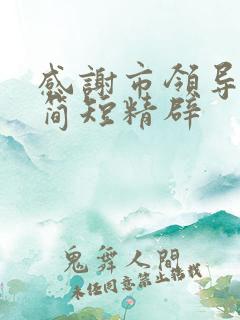 感謝市領导
简短精辟
鬼舞人間
未经同意禁止搬载